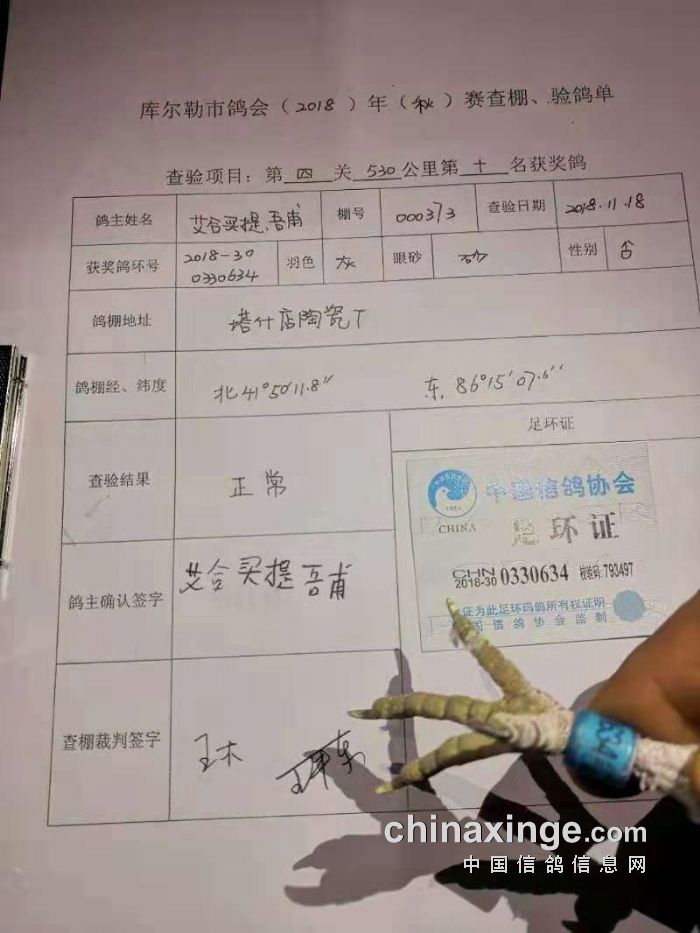 库尔勒市鸽会（2018）年（秋）赛查棚、验鸽单
查验项目：第 四 关 530 公里第 十 名获奖鸽
鸽主姓名 艾合买提.吾甫 棚号 000373 查验日期 2018.11.18
获奖鸽环号 2018-30 0330634 羽色 灰 眼砂 砂 性别
鸽棚地址 塔什店陶瓷厂
鸽棚经、纬度 北41°50′11.8″ 东.86°15′07.6″
足环证
查验结果 正常
中国信鸽协会
CHINA
足环证
CHN
2018-30 0330634 校验码:793497
证为此足环码鸽所有权证明
国信鸽协会监制
鸽主确认签字 艾合买提吾甫
查棚裁判签字 王木
chinaxinge.com
中国信鸽信息网